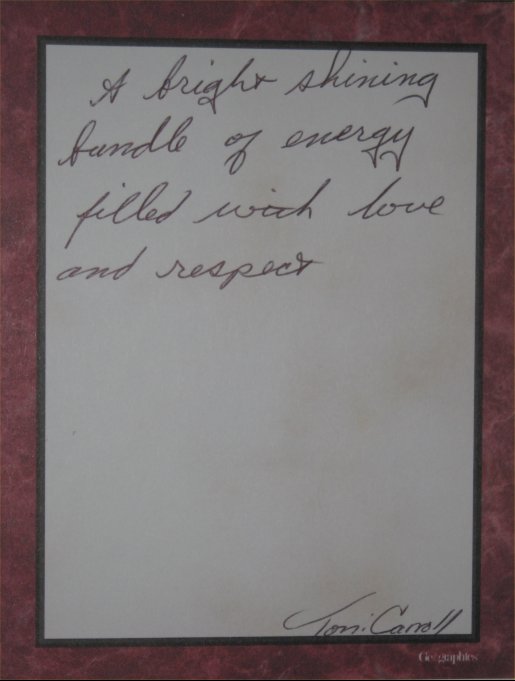 A bright shining
bundle of energy
filled with love
and respect
Toni Carroll
Geographics